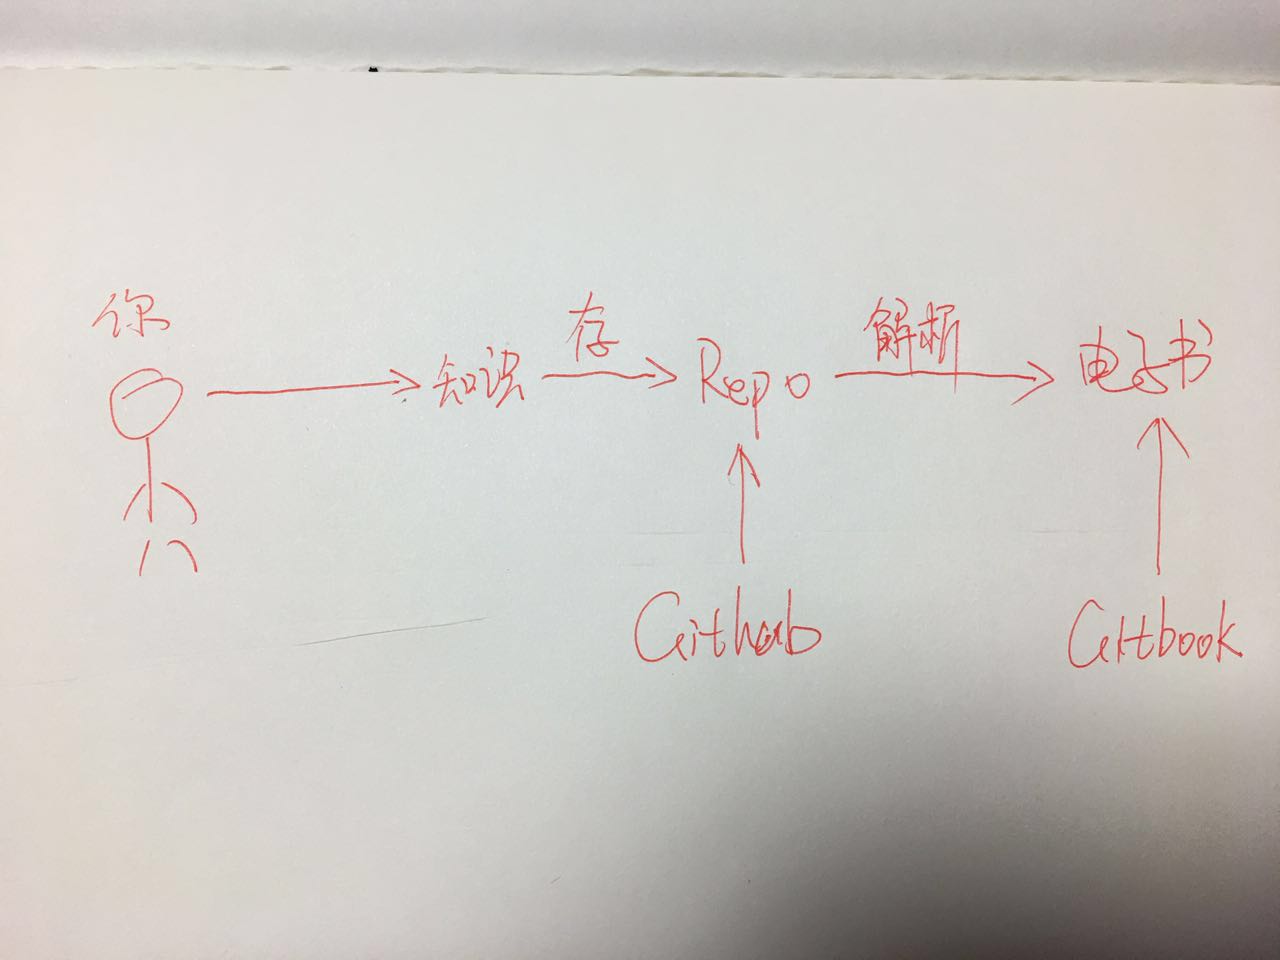 你
知识
存
Repo
解析
电子书
Github
Gitbook